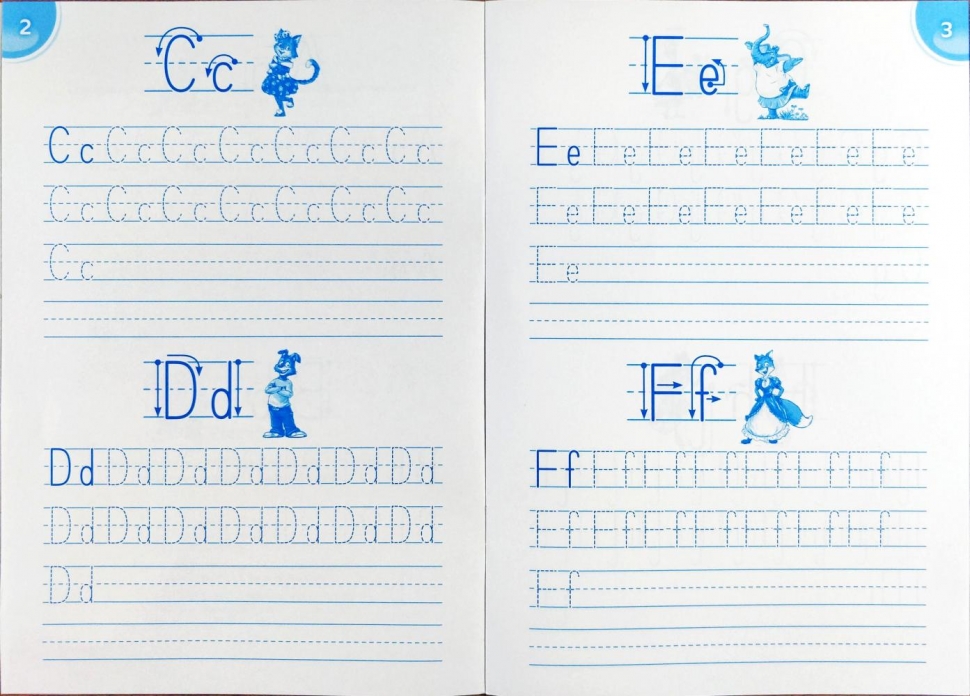 2
C c
C c C c C c C c C c C c C c
C c C c C c C c C c C c C c
C c
D d
D d D d D d D d D d D d D d
D d D d D d D d D d D d D d
D d
3
E e
E e E e E e E e E e E e E e
E e E e E e E e E e E e E e
E e
F f
F f F f F f F f F f F f F f
F f F f F f F f F f F f F f
F f